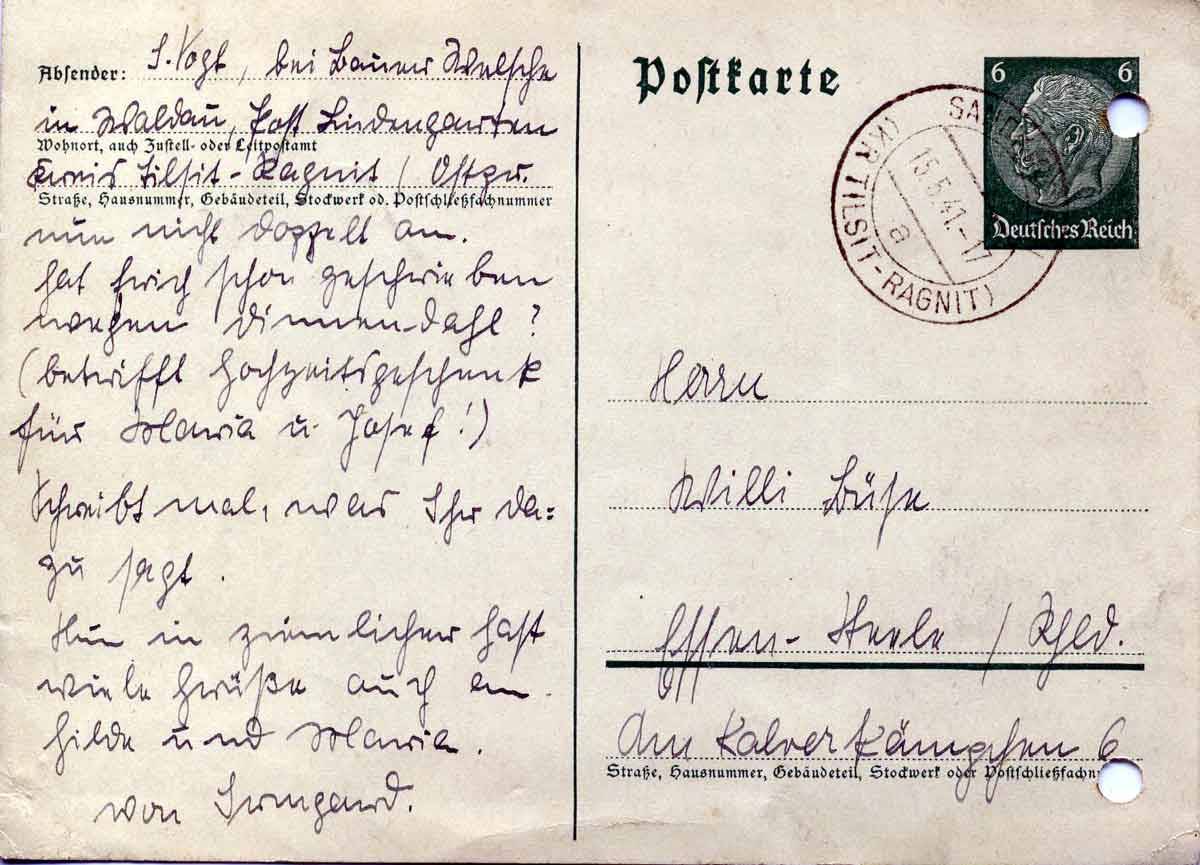 Absender: I. Vogt, bei Bauer Welsche
in Waldau, Post Lindengarten
Wohnort, auch Zustell- oder Leitpostamt
Kreis Tilsit-Ragnit / Ostpr.
Straße, Hausnummer, Gebäudeteil, Stockwerk od. Postschließfachnummer
nun nicht doppelt an.
hat Erich schon geschrieben
wegen Dinnendahl?
(betrifft Hochzeitsgeschenk
für Maria u. Josef!)
Schreibt mal, was Ihr da=
zu sagt.
Nun in ziemlicher Hast
viele Grüße auch an
Hilde und Maria.
von Irmgard.
Postkarte
6 6
Deutsches Reich
(KR TILSIT-RAGNIT)
15.5.41.-17
a
Herrn
Willi Büse
Essen-Steele / Rhld.
Am Kalverkämpchen 6
Straße, Hausnummer, Gebäudeteil, Stockwerk oder Postschließfachn